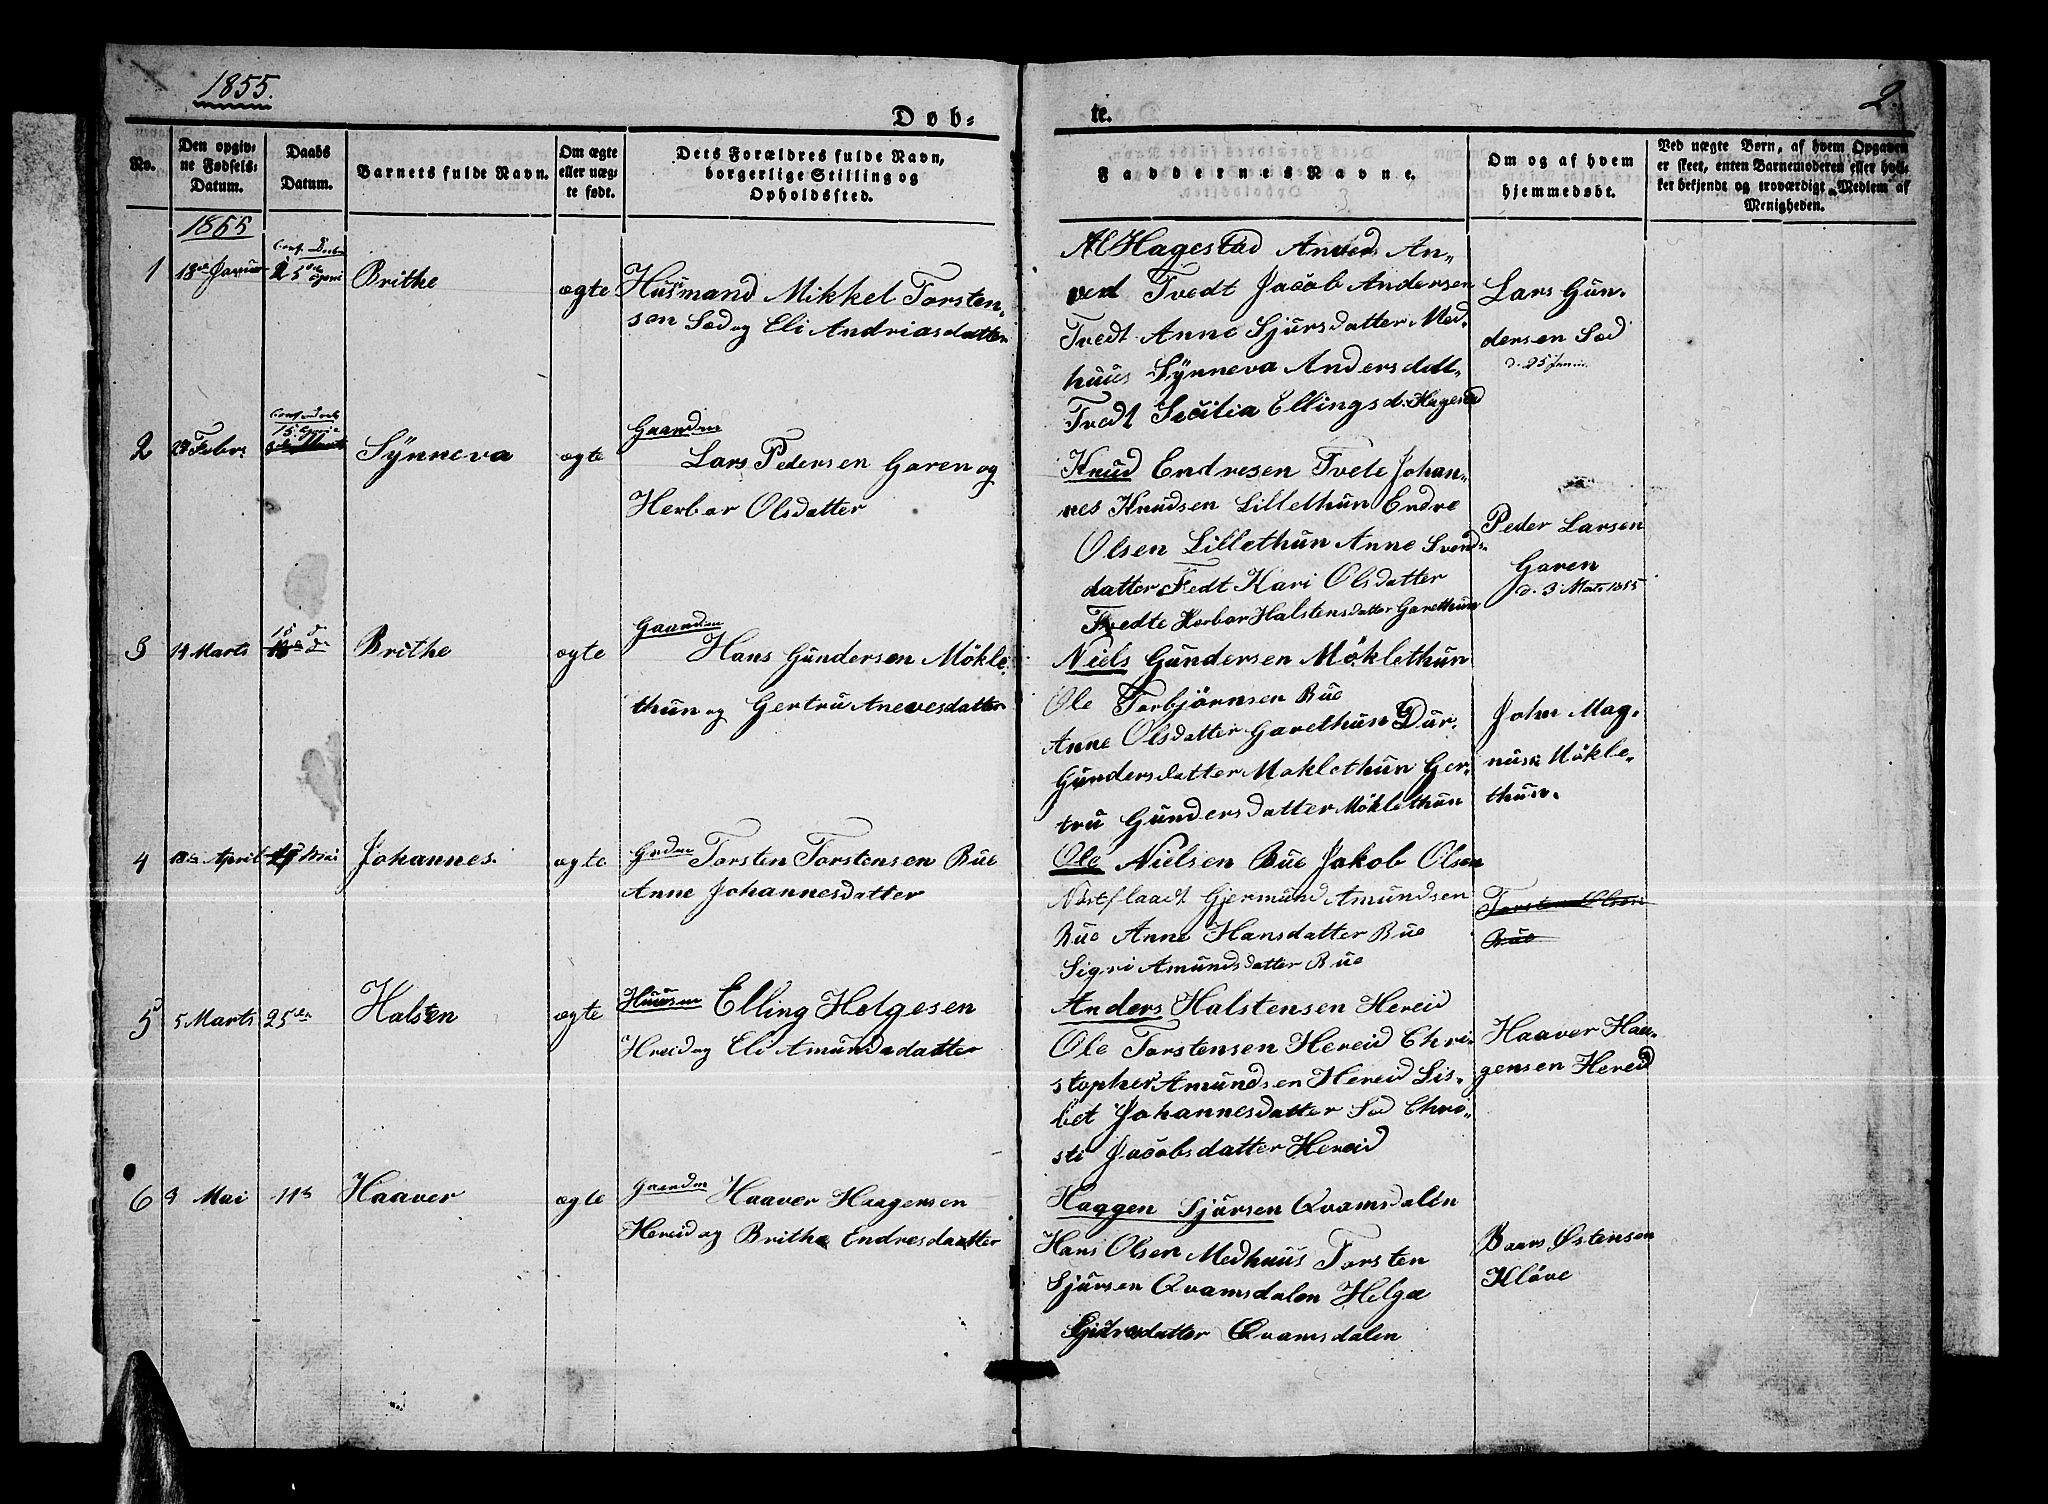 1855.
2
Døb-
te.
No.
Den opgiv-
ne Fødsels-
Datum.
Daabs
Datum.
Barnets fulde Navn.
Om ægte
eller uæg-
te født.
Dets Forældres fulde Navn,
borgerlige Stilling og
Opholdssted.
Faddernes Navne.
Om og af hvem
hjemmedøbt.
Ved uægte Børn, af hvem Opgaven
er skeet, enten Barnemoderen eller hvil-
ket bekjendt og troværdigt Medlem af
Menigheden.
1855
1
18de Januar
Brithe
ægte
Husmand Mikkel Torsten-
sen Sæd og Eli Andriasdatter
Hagestad Anders An-
Tvedt Jacob Andersen
Tvedt Anne Sjursdatter Med-
huus Synneva Andersdatt.
Tvedt Sicilia Ellings d. Hagestd
Lars Gun-
dersen Sæd
d. 25 Janu
2
Febr.
Synneva
ægte
Gaardm
Lars Pedersen Garen og
Herbor Olsdatter
Knud Endresen Tvete Johan-
nes Knudsen Lillethun Endre
Olsen Lillethun Anne Svends-
datter Tvedt Kari Olsdatter
Tvedte Herbor Halstensdatter Garethun
Peder Larsen
Garen
d. 3 Mars 1855
3
14 Marts
Brithe
ægte
Gaardm
Hans Gundersen Mökle-
thun og Gertru Anevesdatter
Niels Gundersen Möklethun
Ole Torbjörnsen Bue
Anne Olsdatter Garethun Dur-
Gundersdatter Moklethun Ger-
tru Gundersdatter Möklethun
John Mag-
nus Mökle-
thun.
4
18de April
Mai
Johannes.
ægte
Grdm Torsten Torstensen Bue
Anne Johannesdatter
Ole Nielsen Bue Jakob Olsen
Nostflaadt Gjermund Amundsen
Bue Anne Hansdatter Bue
Sigri Amundsdatter Bue
Torsten Olsen
Bue
5
5 Marts
25de
Halsten
ægte
Huusm Elling Helgesen
Hreid og Eli Amundsdatter
Anders Halstensen Hereid
Ole Torstensen Hereid Chri-
stopher Amundsen Hereid Lis-
bet Johannesdatter Sæd Chri-
sti Jacobsdatter Hereid
Haaver Haa-
gensen Hereid
6
3 Mai
11te
Haaver
ægte
Gaardm Haaver Haagensen
Hereid og Brithe Endresdatter
Haagen Sjursen Qvamsdalen
Hans Olsen Medhuus Torsten
Sjursen Qvamsdalen Helga
Sjursdatter Qvamsdalen
Baars Østensen
Kløve